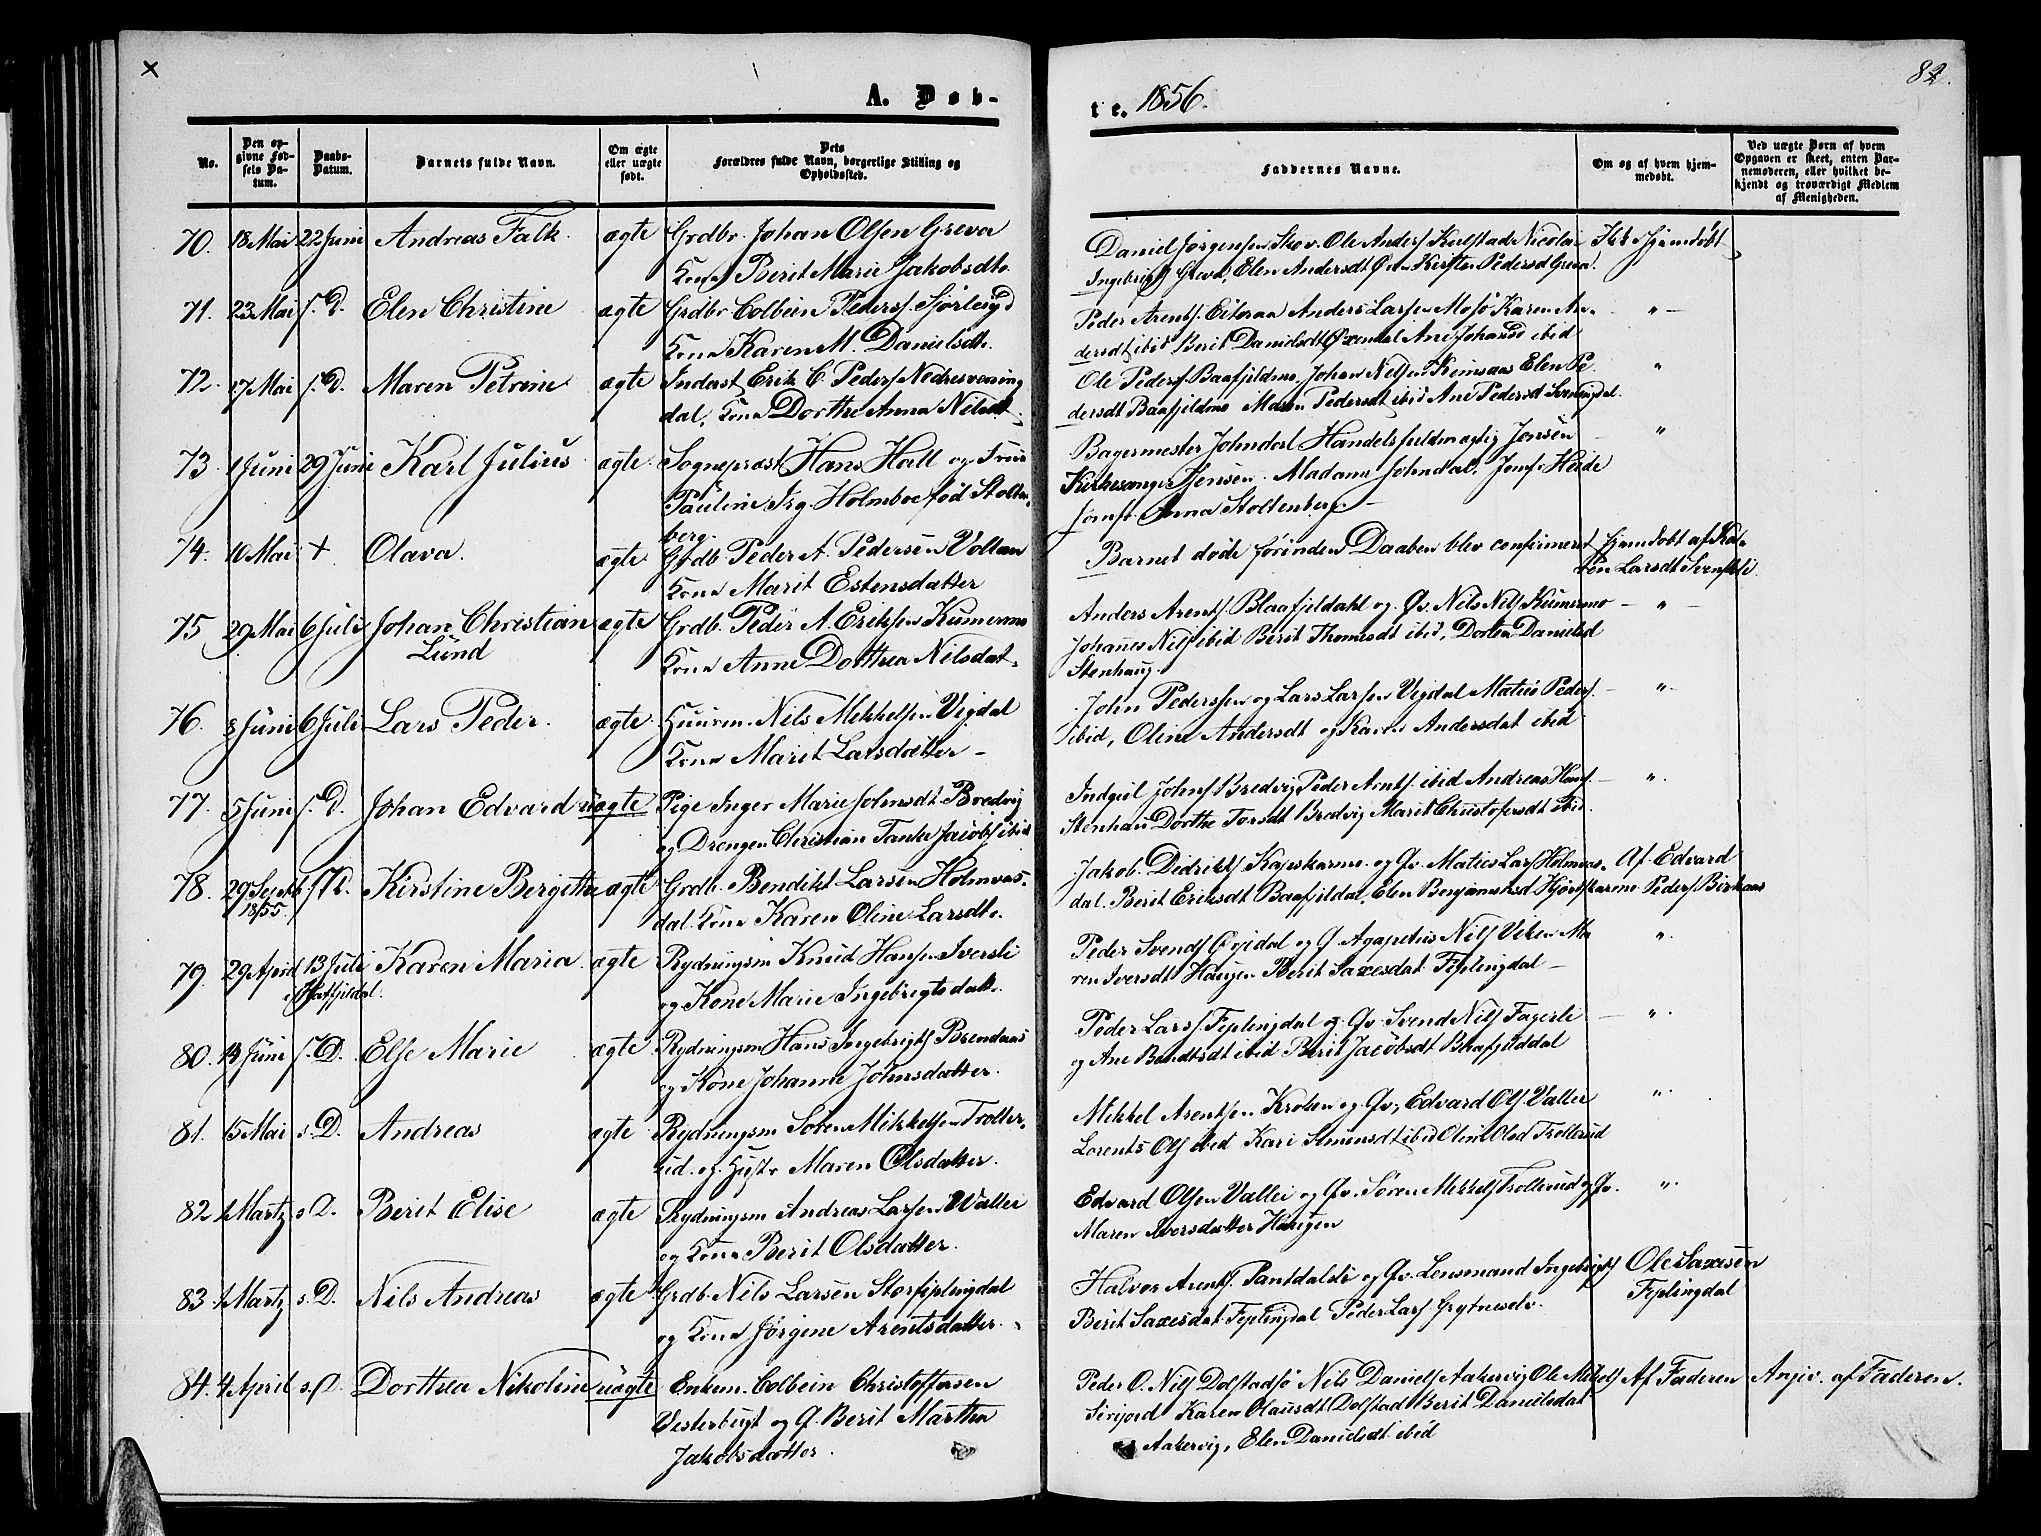 A. Døb-
te. 1856.
82.
No.
Den op-
givne Fød-
sels Da-
tum.
Daabs-
Datum.
Barnets fulde Navn.
Om ægte
eller uægte
født.
Dets
Forældres fulde Navn, borgerlige Stilling og
Opholdssted.
Faddernes Navne.
Om og af hvem hjem-
medøbt.
Ved uægte Børn af hvem
Opgaven er skeet, enten Bar-
nemoderen, eller hvilket be-
kjendt og troværdigt Medlem
af Menigheden.
70. 18 Mai 22 Juni Andreas Falk. ægte Grdbr. Johan Olsen Greva
Kone Berit Marie Jakobsdtr.
Daniel Jørgensen Skov. Ole Anders Kulstad Nicolai
Greva, Elen Andersdt Kirsten Pedersd Greva.
71. 23 Mai s. D. Elen Christine ægte Grdbr Colbein Peders
Kone Karen M. Danielsdtr.
Peder Arents. Anders Larsen Mosø Karen An-
dersdt ibid Berit Danielsdt Ane Johansd ibid
72. 17 Mai s. D. Maren Petrine ægte Inderst Erik C. Peders Nedresvening
dal, Kone Dorthe Anna Nilsdt
Ole Peders Baafjeldmo, Johan Nilsen Elen Pe
dersdt Baafjeldmo Maren Pedersdt ibid Ane Pedersdt
73. 1 Juni 29 Juni Karl Julius ægte. Sognepræst Hans Hall og Frue
Pauline Holmboe fød Stolten-
berg.
Bagermester Johndal Handelsfuldmægtig Jensen
Kirkesanger Jensen. Madame Johndal. Jomf. Heide
Jomfr. Anna Stoltenberg.
74. 10 Mai + Olava. ægte Grdb Peder A. Pedersen Voltan
Kone Marit Estensdatter
Barnet døde førinden Daaben blev confirmeret hjemdøbt af Ka-
ren Larsdt
75 29 Mai 6 Juli Johan Christian ægte Grdb. Peder A. Eriksen Kumermo
Lund
Kone Anne Dorthea Nilsdat.
Anders Arents Blaafjeldahl og Qv. Nils Nils Kumermo — " —
Johannes Nils ibid Berit Thomesdt ibid, Dortea Danielsd
Stenhaug.
76. 8 Juni 6 Juli Lars Peder. ægte. Nils Mikkelsen Vigdal
Kone Marit Larsdatter —
John Pedersen og Lars Larsen Vigdal Matis Peders. — "
ibid, Oline Andersdt og Karen Andersdat ibid
77. 5 Juni s. D. Johan Edvard uægte Pige Inger Marie Johnsdt Bredvig
og Drengen Christian Tanke Jacobs ibid
Johns Bredvig Peder Arnts ibid Andreas Hans — "
Stenhau Dorthe Torsdt Bredvig Marit Christofersdt ibid.
78. 29 Septb s. D. Kirstine Bergitte ægte Grdb. Bendikt Larsen Holmvas-
1855.
dal. Kone Karen Oline Larsdtr.
Jakob. Didriks og Qv. Matias Lars Holmvas- Af Edvard
dal. Berit Eriksdt Baafjeldal, Elen Benjaminsd Peders
79. 29 April 13 Juli Karen Maria. ægte Rydningsm Knud Hansen Iversli
i Hatfjeldal.
og Kone Marie Ingebrigtsdatr.
Peder Svends og Q. Agapetus Nils Ma
ren Iversdt Haugen Berit Saxesdat Fiplingdal —
80. 14 Juni s. D. Else Marie ægte Rydningsm Hans Ingebrigts Brendaas
og Kone Johanne Johnsdatter.
Peder Lars Fiplingdal og Qv. Svend Nils Fagerli — "
og Ane Bendtsdt ibid Berit Jacobsdt Baafjelddal
81. 15 Mai s. D. Andreas ægte Rydningsm Søren Mikkelsen Troller-
ud. og Hustr Maren Olsdatter.
Mikkel Arentsen Kroken og Qv, Edvard Ols Vallei "
Lorents Ols ibid Kari Simonsdt ibid Oline Olsd Trollerud
82. 1 Martz s. D. Berit Elise ægte Rydningsm Andreas Larsen Wallei
og Kone Berit Olsdatter.
Edvard Olsen Vallei og Qv. Søren Mikkels Trollerud og Qv. "
Maren Iversdatter Haugen
83. 1 Martz s. D. Nils Andreas ægte Grdb. Nils Larsen Storfiplingdal
og Kone Jørgine Arentsdatter.
Halvor Arents. og Qv. Lensmand Ingebrigts Ole Saxesen
Berit Saxesdat Fiplingdal Peder Lars Fiplingdal
84. 4 April s. D. Dorthea Nikoline uægte Enkem. Colbein Christoffersen
Vesterbugt og Q. Berit Martha
Jakobsdatter.
Peder O. Nils Dolstadsø Nils Daniels Aakervig Ole Mikels Af Faderen Angiv. af Faderen.
Karen Olausdt Dolstad Berit Danielsdat
Aakervig, Elen Danielsdt ibid